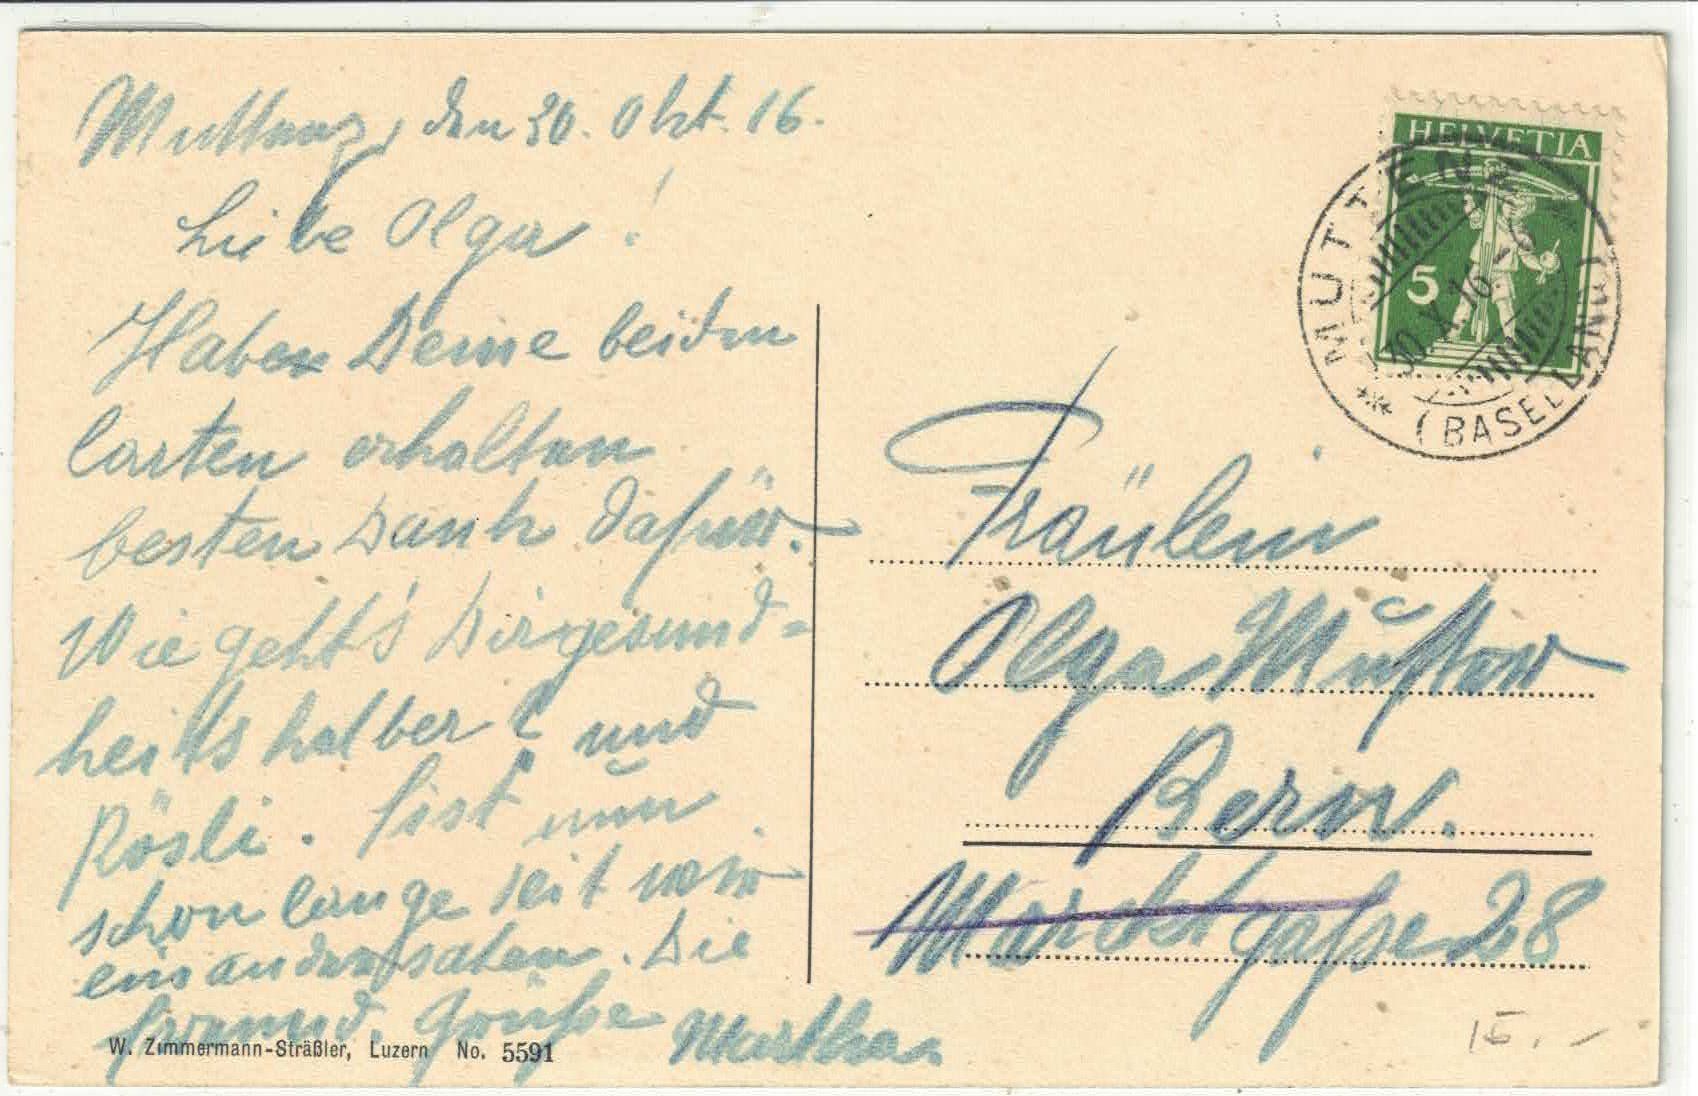 Muttenz, den 30. Okt. 16.
Liebe Olga!
Haben Deine beiden
Carten erhalten
besten Dank dafür.
Wie geht's Dir gesund=
heits halber? und
Rösli. Sist nun
schon lange seit wir
einander sahen. Die
freund. Grüße Martha
W. Zimmermann-Sträßler, Luzern No. 5591
HELVETIA
5
MUTTENZ
30.X.16
(BASELLAND)
Fräulein
Olga
Bern.
Marcktgaße 28
15.-